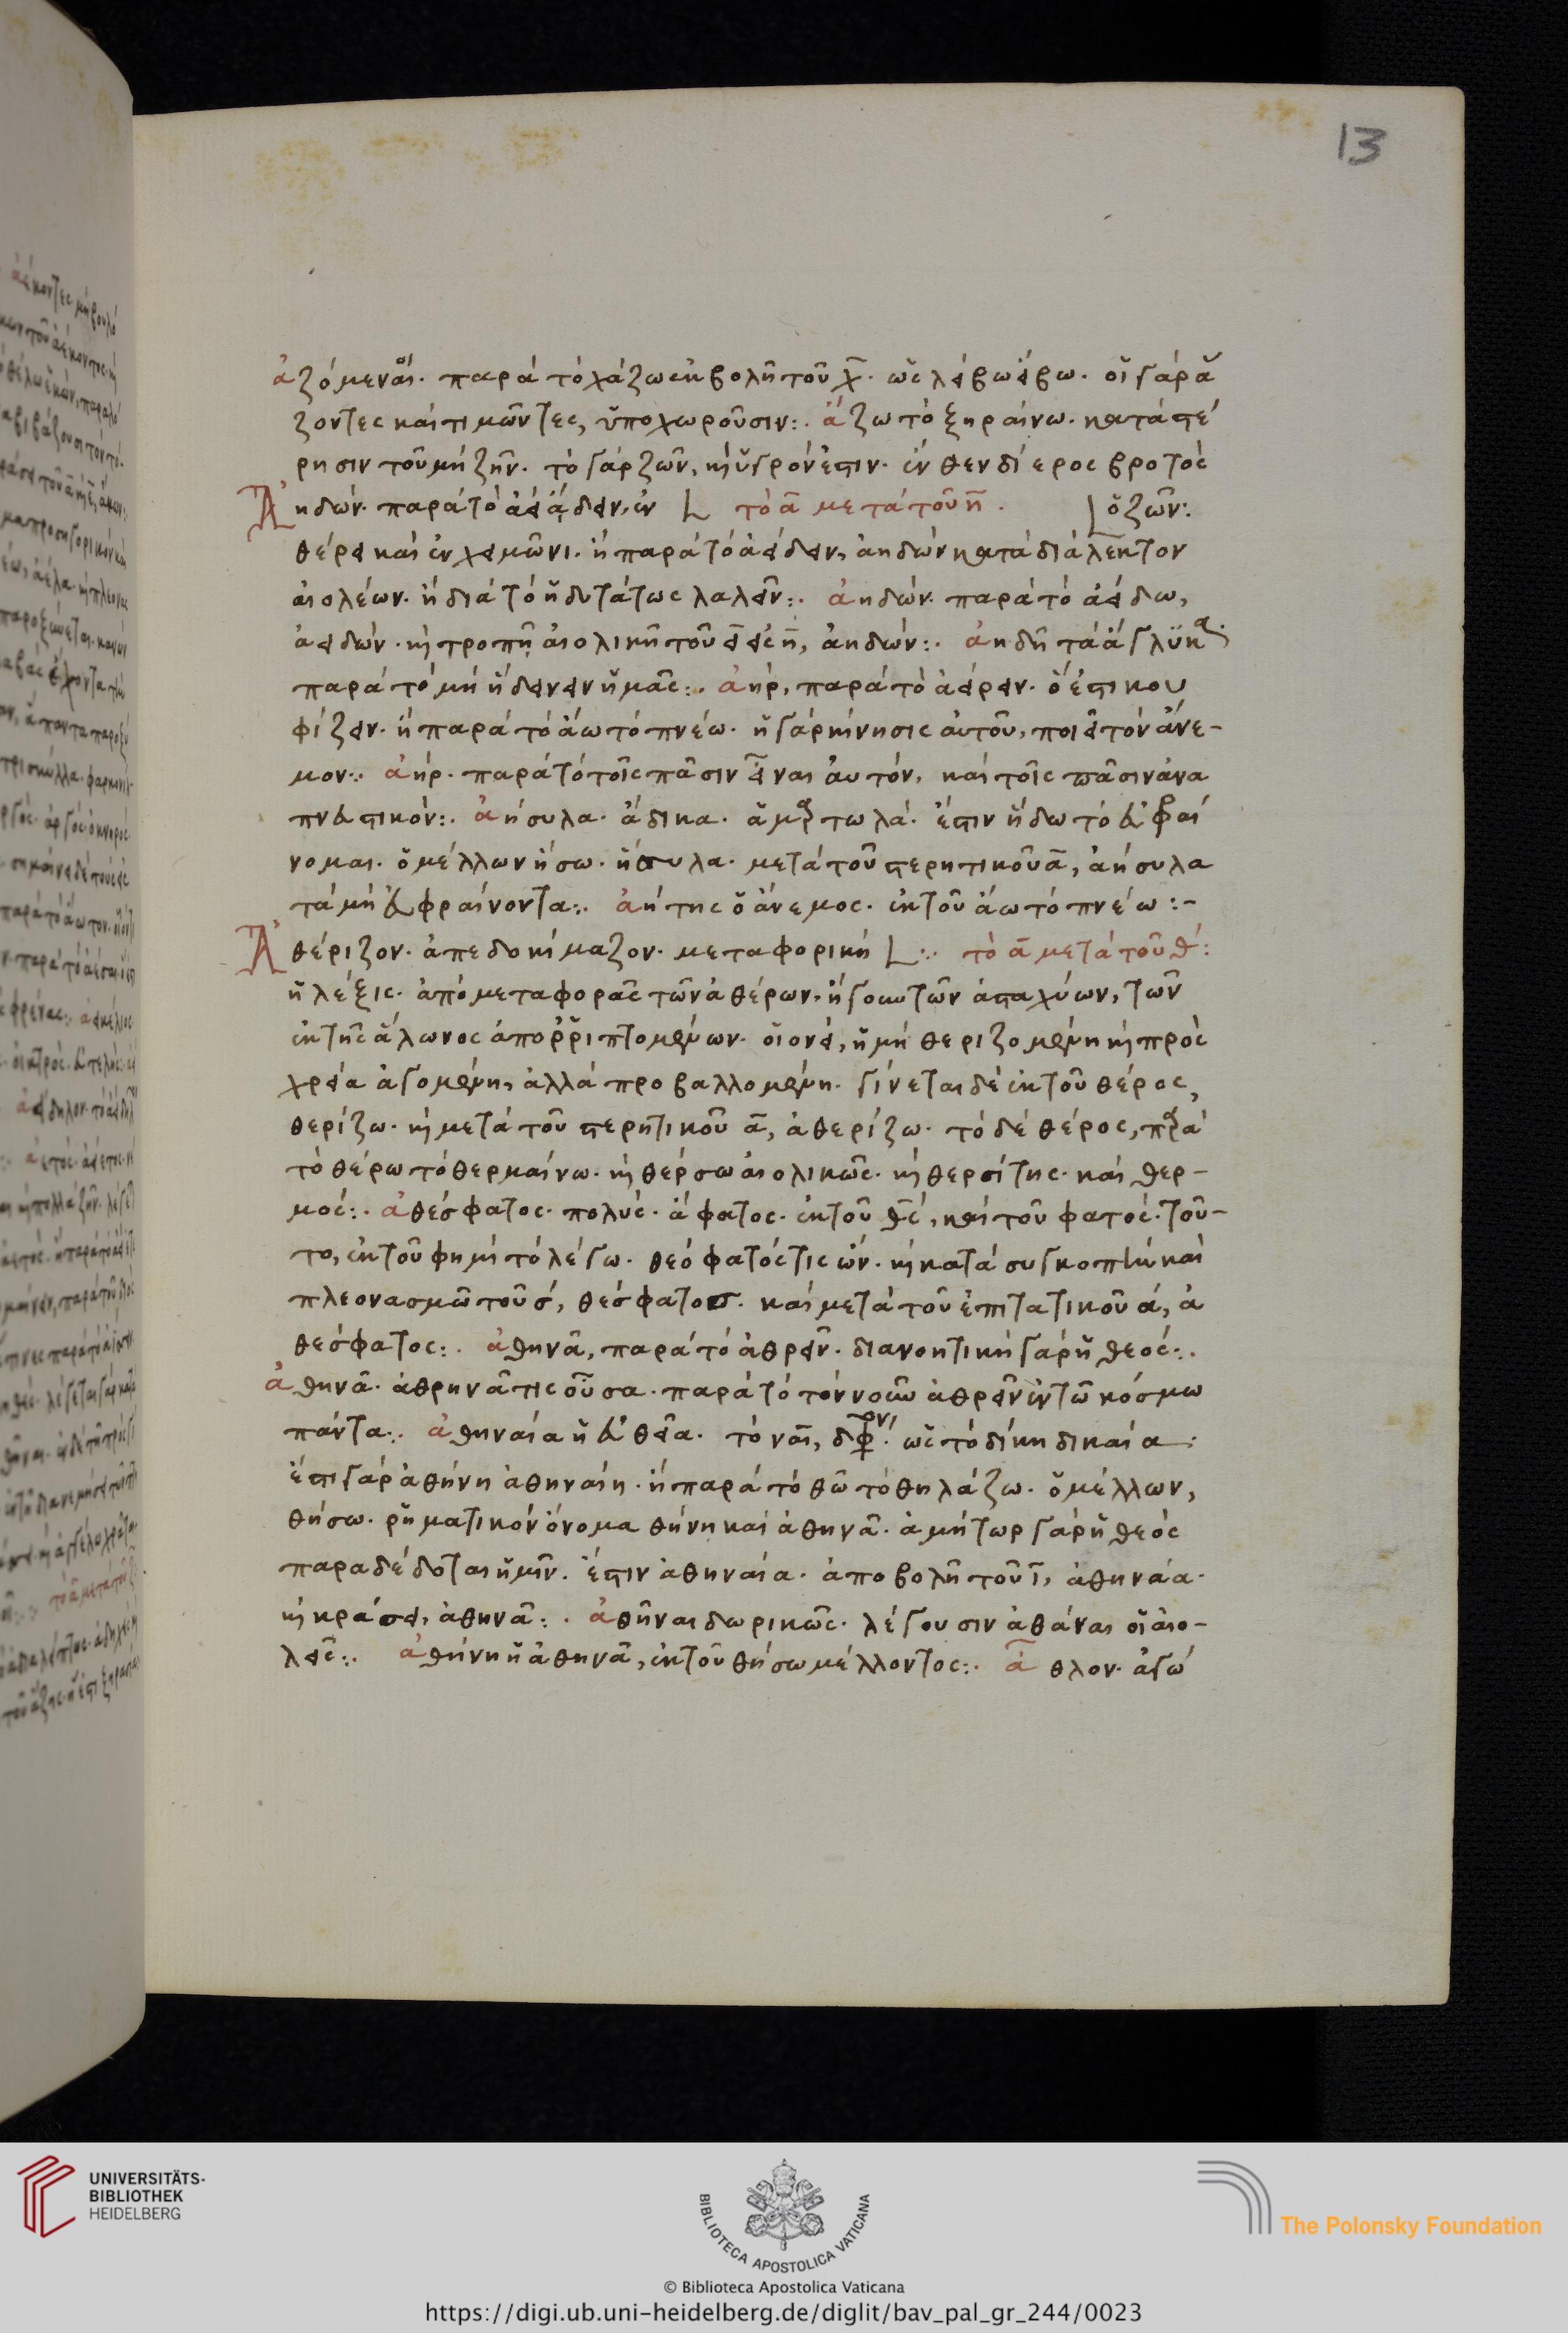 13
ἀζόμενοι. παρὰ τὸ χάζω ἐκβολῆ τοῦ χ. ὡς λείβω εἴβω. οἱ γὰρ ἅ
ζοντες καὶ τιμῶντες, ὑποχωροῦσιν:. ἄζω τὸ ξηραίνω. κατὰ στέ
ρησιν τοῦ μὴ ζῆν. τὸ γὰρ ζῶν, καὶ ὑγρόν ἐστιν. ἔνθεν δίερος βροτὸς
Ἀηδών. παρὰ τὸ ἀεὶ ᾄδειν, ἐν τὸ α μετὰ τοῦ η. ὁ ζῶν:
θέρει καὶ ἐν χειμῶνι. ἢ παρὰ τὸ ἀείδειν, ἀηδών κατὰ διάλεκτον
αἰολέων. ἢ διὰ τὸ ἡδυτάτως λαλεῖν:. ἀηδών. παρὰ τὸ ἀείδω,
ἀειδών. καὶ τροπῆ αἰολικῆ τοῦ ει εἰς η, ἀηδών:. ἀηδῆ τὰ ἀγλυκ
παρὰ τὸ μὴ ἥδειν ἡμᾶς:. ἀήρ, παρὰ τὸ ἀείρειν. ὅ ἐστι κου
φίζειν. ἢ παρὰ τὸ ἄω τὸ πνέω. ἡ γὰρ κίνησις αὐτοῦ, ποιεῖ τὸν ἄνε-
μον:. ἀήρ. παρὰ τὸ τοῖς πᾶσιν εἶναι αὐτόν, καὶ τοῖς πᾶσιν ἀνα
πνευστικόν:. ἀήσυλα. ἄδικα. ἁμαρτωλά. ἔστιν ἥδω τὸ εὐφραί
νομαι. ὁ μέλλων ἥσω. ἥσυλα. μετὰ τοῦ στερητικοῦ α, ἀήσυλα
τὰ μὴ εὐφραίνοντα:. ἀήτης ὁ ἄνεμος. ἐκ τοῦ ἄω τὸ πνέω:-
Ἀθέριζον. ἀπεδοκίμαζον. μεταφορικὴ :. τὸ α μετὰ τοῦ θ:
ἡ λέξις. ἀπὸ μεταφορᾶς τῶν ἀθέρων, ἤγουν τῶν ἀσταχύων, τῶν
ἐκ τῆς ἅλωνος ἀπορριπτομένων. οἱονεὶ, ἡ μὴ θεριζομένη καὶ πρὸς
χρεία ἀγομένη, ἀλλὰ προβαλλομένη. γίνεται δὲ ἐκ τοῦ θέρος,
θερίζω. καὶ μετὰ τοῦ στερητικοῦ α, ἀθερίζω. τὸ δὲ θέρος, παρὰ
τὸ θέρω τὸ θερμαίνω. καὶ θέρσω αἰολικῶς. καὶ θερσίτης. καὶ θερ-
μός:. ἀθέσφατος. πολύς. ἄφατος. ἐκ τοῦ θεός, καὶ τοῦ φατός. τοῦ-
το, ἐκ τοῦ φημὶ τὸ λέγω. θεόφατός τις ὤν. καὶ κατὰ συγκοπὴν καὶ
πλεονασμῶ τοῦ σ, θέσφατος. καὶ μετὰ τοῦ ἐπιτατικοῦ α, ἀ
θέσφατος:. ἀθηνᾶ, παρὰ τὸ ἀθρεῖν. διανοητικὴ γὰρ ἡ θεός:.
ἀθηνᾶ. ἀθρηνᾶ τις οὖσα. παρὰ τὸ τὸν νοῦν ἀθρεῖν ἐν τῶ κόσμω
πάντα:. ἀθηναία ἡ εὐθεῖα. τὸ ναι, δίφθογγον. ὡς τὸ δίκη δικαία:
ἔστι γὰρ ἀθήνη ἀθηναίη. ἢ παρὰ τὸ θῶ τὸ θηλάζω. ὁ μέλλων,
θήσω. ῥηματικὸν ὄνομα θήνη καὶ ἀθηνᾶ. ἀμήτωρ γὰρ ἡ θεὸς
παραδέδοται ἡμῖν. ἔστιν ἀθηναία. ἀποβολῆ τοῦ ι, ἀθηνάα.
καὶ κράσει, ἀθηνᾶ:. ἀθῆναι δωρικῶς. λέγουσιν ἀθάναι οἱ αἰο-
λεῖς:. ἀθήνη ἡ ἀθηνᾶ, ἐκ τοῦ θήσω μέλλοντος:. ἆθλον. ἀγώ
UNIVERSITÄTS-
BIBLIOTHEK
HEIDELBERG
BIBLIOTECA APOSTOLICA VATICANA
The Polonsky Foundation
© Biblioteca Apostolica Vaticana
https://digi.ub.uni-heidelberg.de/diglit/bav_pal_gr_244/0023